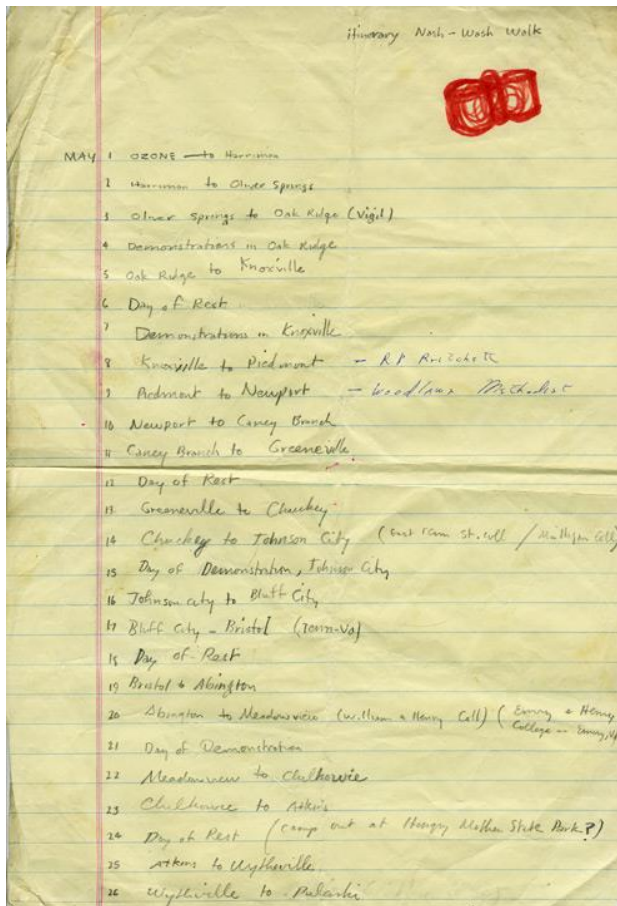 itinerary Nash-Wash Walk
MAY 1 OZONE → to Harriman
2 Harriman to Oliver Springs
3 Oliver Springs to Oak Ridge (Vigil)
4 Demonstrations in Oak Ridge
5 Oak Ridge to Knoxville
6 Day of Rest
7 Demonstrations in Knoxville
8 Knoxville to Piedmont - RP
9 Piedmont to Newport - Woodlawn Methodist
10 Newport to Caney Branch
11 Caney Branch to Greeneville
12 Day of Rest
13 Greeneville to Chuckey
14 Chuckey to Johnson City (East Tenn St. Coll / Milligan Coll)
15 Day of Demonstration, Johnson City
16 Johnson city to Bluff City
17 Bluff City - Bristol (Tenn-Va)
18 Day of Rest
19 Bristol to Abington
20 Abington to Meadowview (William & Henry Coll) (Emory & Henry
College - Emory, Va
21 Day of Demonstration
22 Meadowview to Chilhowie
23 Chilhowie to Atkins
24 Day of Rest (camp out at Hungry Mother State Park?)
25 Atkins to Wytheville
26 Wytheville to Pulaski